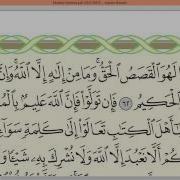 لَهُوَ ٱلْقَصَصُ ٱلْحَقُّ وَمَا مِنْ إِلَٰهٍ إِلَّا ٱللَّهُ وَإِنَّ
ٱلْحَكِيمُ ٦٢ فَإِن تَوَلَّوْا۟ فَإِنَّ ٱللَّهَ عَلِيمٌۢ بِٱلْمُ
أَهْلَ ٱلْكِتَٰبِ تَعَالَوْا۟ إِلَىٰ كَلِمَةٍ سَوَآءٍ
كُمْ أَلَّا نَعْبُدَ إِلَّا ٱللَّهَ وَلَا نُشْرِكَ بِهِۦ شَيْـًٔا وَ